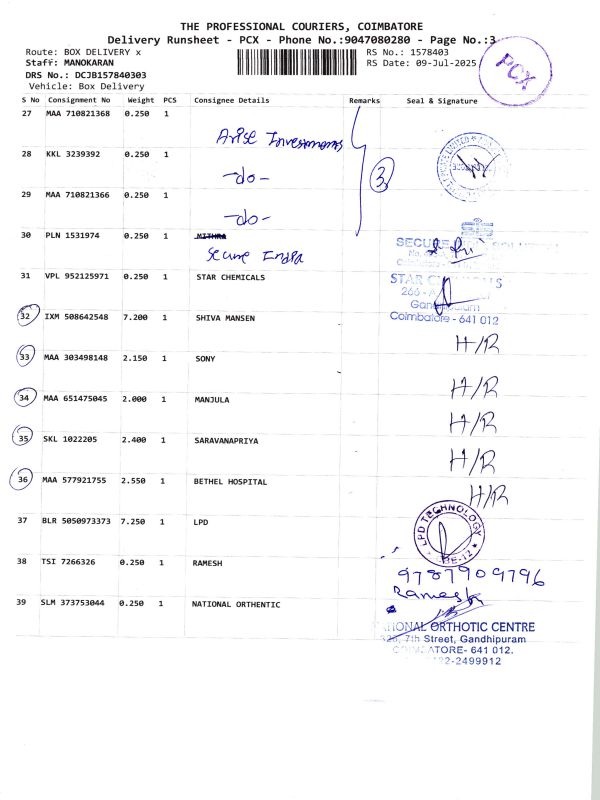 THE PROFESSIONAL COURIERS, COIMBATORE
Delivery Runsheet - PCX - Phone No.:9047080280 - Page No.:3
Route: BOX DELIVERY x
RS No.: 1578403
Staff: MANOKARAN
RS Date: 09-Jul-2025
DRS No.: DCJB157840303
Vehicle: Box Delivery
PCX
S No Consignment No Weight PCS Consignee Details Remarks Seal & Signature
27 MAA 710821368 0.250 1
Arise Investments
28 KKL 3239392 0.250 1
-do-
3
29 MAA 710821366 0.250 1
-do-
30 PLN 1531974 0.250 1 MITHRA
Secure India
SECURE
31 VPL 952125971 0.250 1 STAR CHEMICALS
STAR
266 -
Coimbatore - 641 012
32 IXM 508642548 7.200 1 SHIVA MANSEN
H/R
33 MAA 303498148 2.150 1 SONY
H/R
34 MAA 651475045 2.000 1 MANJULA
H/R
35 SKL 1022205 2.400 1 SARAVANAPRIYA
H/R
36 MAA 577921755 2.550 1 BETHEL HOSPITAL
H/R
37 BLR 5050973373 7.250 1 LPD
LPD TECHNOLOGY
38 TSI 7266326 0.250 1 RAMESH
9787909796
Ramesh
39 SLM 373753044 0.250 1 NATIONAL ORTHENTIC
ORTHOTIC CENTRE
7th Street, Gandhipuram
641 012.
22-2499912